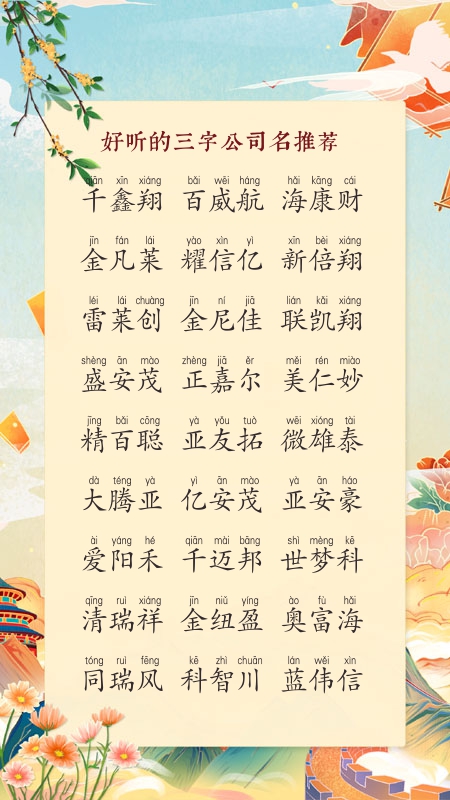 好听的三字公司名推荐
qiān xīn xiáng bǎi wēi háng hǎi kāng cái
千鑫翔 百威航 海康财
jīn fán lái yào xìn yì xīn bèi xiáng
金凡莱 耀信亿 新倍翔
léi lái chuàng jīn ní jiā lián kǎi xiáng
雷莱创 金尼佳 联凯翔
shèng ān mào zhèng jiā ěr měi rén miào
盛安茂 正嘉尔 美仁妙
jīng bǎi cōng yà yǒu tuò wēi xióng tài
精百聪 亚友拓 微雄泰
dà téng yà yì ān mào yà ān háo
大腾亚 亿安茂 亚安豪
ài yáng hé qiān mài bāng shì mèng kē
爱阳禾 千迈邦 世梦科
qīng ruì xiáng jīn niǔ yíng ào fù hǎi
清瑞祥 金纽盈 奥富海
tóng ruì fēng kē zhì chuān lán wěi xìn
同瑞风 科智川 蓝伟信